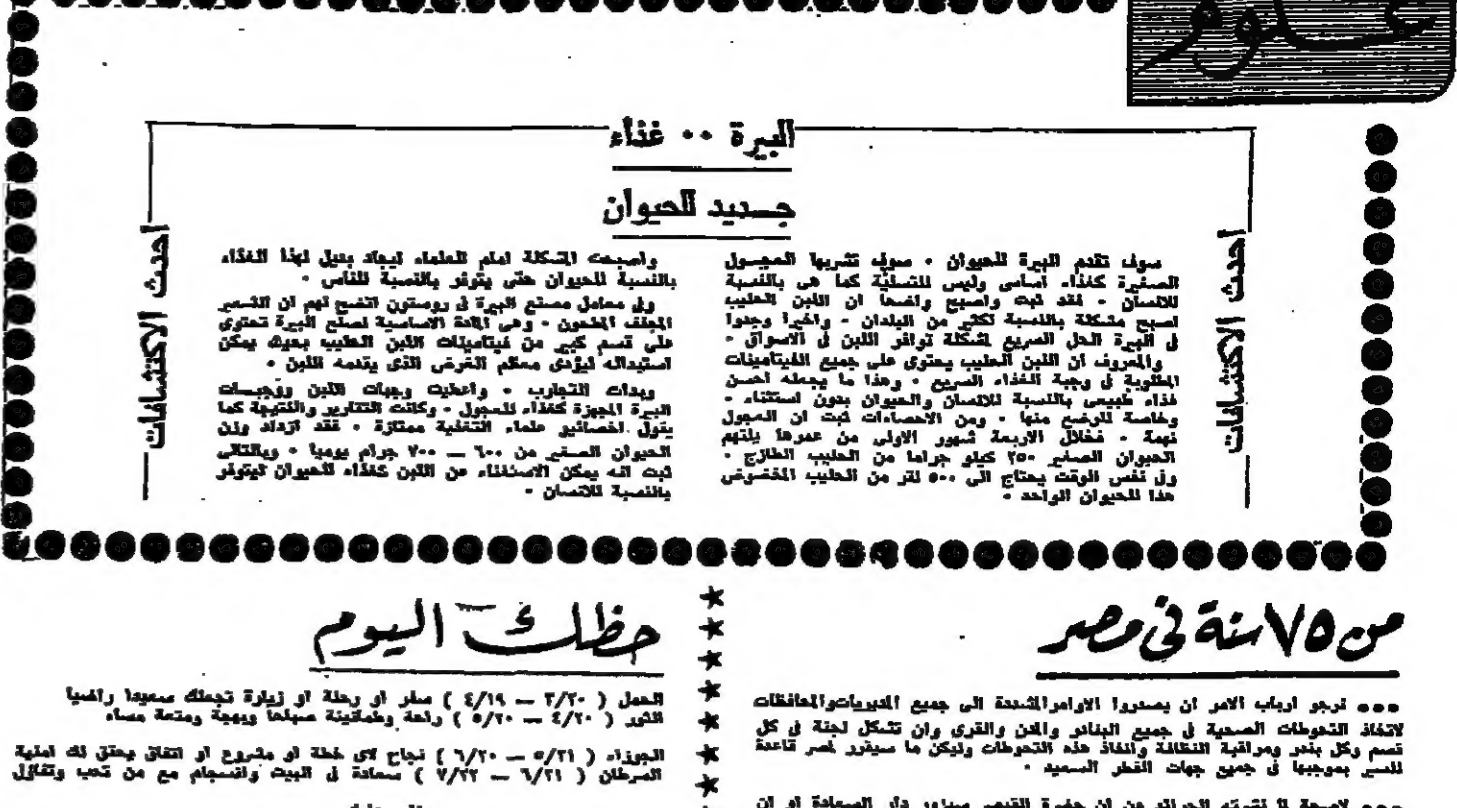 علوم
البيرة .. غذاء
جديد للحيوان
أحدث الاكتشافات
سوف تقدم البيرة للحيوان . سوف تشربها العجول
الصغيرة كغذاء أساسى وليس للتسلية كما هى بالنسبة
للانسان . فقد ثبت واصبح واضحا ان اللبن الحليب
اصبح مشكلة بالنسبة لكثير من البلدان . واخيرا وجدوا
فى البيرة الحل السريع لمشكلة توافر اللبن فى الاسواق .
والمعروف ان اللبن الحليب يحتوى على جميع الفيتامينات
المطلوبة فى وجبة الغذاء السريع . وهذا ما يجعله احسن
غذاء طبيعى بالنسبة للانسان والحيوان بدون استثناء .
وخاصة للرضع منها . ومن الاحصاءات ثبت ان العجول
نهمة . فخلال الاربعة شهور الاولى من عمرها يلتهم
الحيوان الصغير ٢٥٠ كيلو جراما من الحليب الطازج .
وفى نفس الوقت يحتاج الى ٥٠٠ لتر من الحليب المخصوص
هذا للحيوان الواحد .
واصبحت المشكلة امام العلماء ايجاد بديل لهذا الغذاء
بالنسبة للحيوان حتى يتوفر بالنسبة للناس .
وفى معامل مصنع البيرة فى روستون اتضح لهم ان الشعير
المجفف المطحون . وهى المادة الاساسية لصنع البيرة تحتوى
على قسم كبير من فيتامينات اللبن الحليب بحيث يمكن
استبداله ليؤدى معظم الغرض الذى يقدمه اللبن .
وبدات التجارب . واعطيت وجبات اللبن ووجبات
البيرة المجهزة كغذاء للعجول . وكانت التقارير والنتيجة كما
يقول اخصائيو علماء التغذية ممتازة . فقد ازداد وزن
الحيوان الصغير من ٦٠٠ — ٧٠٠ جرام يوميا . وبالتالى
ثبت انه يمكن الاستغناء عن اللبن كغذاء للحيوان ليتوفر
بالنسبة للانسان .
أحدث الاكتشافات
من ٧٥ سنة فى مصر
••• نرجو ارباب الامر ان يصدروا الاوامر المشددة الى جميع المديريات والمحافظات
لاتخاذ التحوطات الصحية فى جميع البنادر والمدن والقرى وان تشكل لجنة فى كل
قسم وكل بندر ومراقبة النظافة وانفاذ هذه التحوطات وليكن ما سيقرر لمصر قاعدة
للسير بموجبها فى جميع جهات القطر السعيد .
••• لاصحة لما نشرته الجرائد عن ان حضرة القيصر سيزور دار السعادة او ان
حظك اليوم
الحمل ( ٣/٢٠ — ٤/١٩ ) سفر او رحلة او زيارة تجعلك سعيدا راضيا
الثور ( ٤/٢٠ — ٥/٢٠ ) راحة وطمانينة صباحا وبهجة ومتعة مساء
الجوزاء ( ٥/٢١ — ٦/٢٠ ) نجاح لاى خطة او مشروع او اتفاق يحقق لك امنية
السرطان ( ٦/٢١ — ٧/٢٢ ) سعادة فى البيت وانسجام مع من تحب وتفاؤل